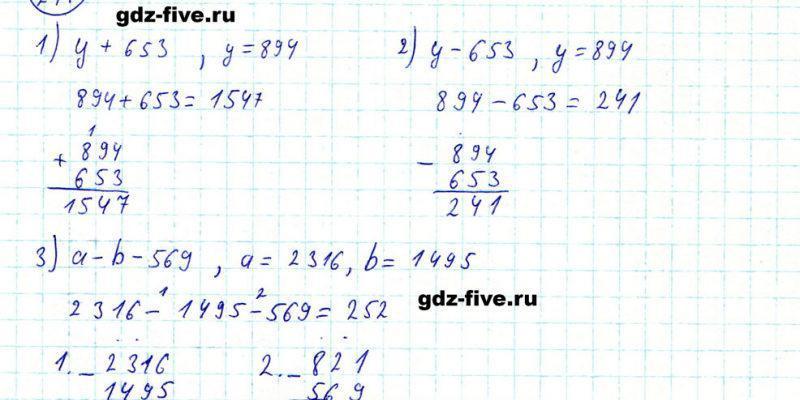 gdz-five.ru
1) y + 653 , y = 894
894 + 653 = 1547
1
+ 894
653
1547
2) y - 653 , y = 894
894 - 653 = 241
- 894
653
241
3) a - b - 569 , a = 2316, b = 1495
1 2
2316 - 1495 - 569 = 252
gdz-five.ru
1. - 2316
1495
2. - 821
569